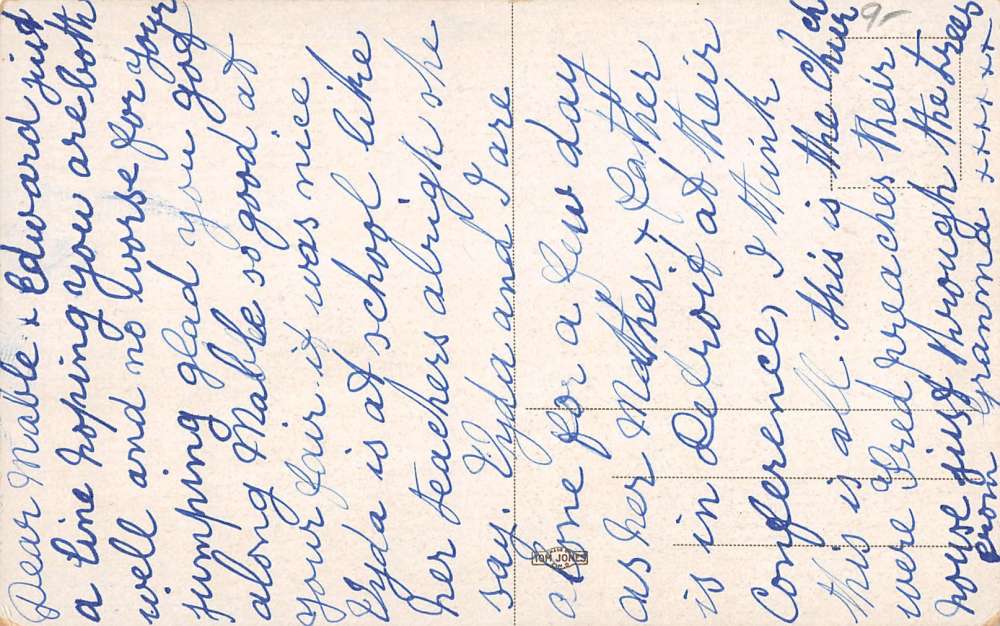 Dear Mable + Edward just
a line hoping you are both
well and no worse for your
jumping glad you got
along Mable so good at
your fair it was nice
Vyda is at school like
her teachers alrigh she
say. Vyda and I are
alone for a few day
as her Mother + Father
is in Detroit at their
Conference, I think
this is all. this is the Church
were Fred preaches their
house just through the trees
from Gramma + + + + +
9-
MADE BY
TOM JONES